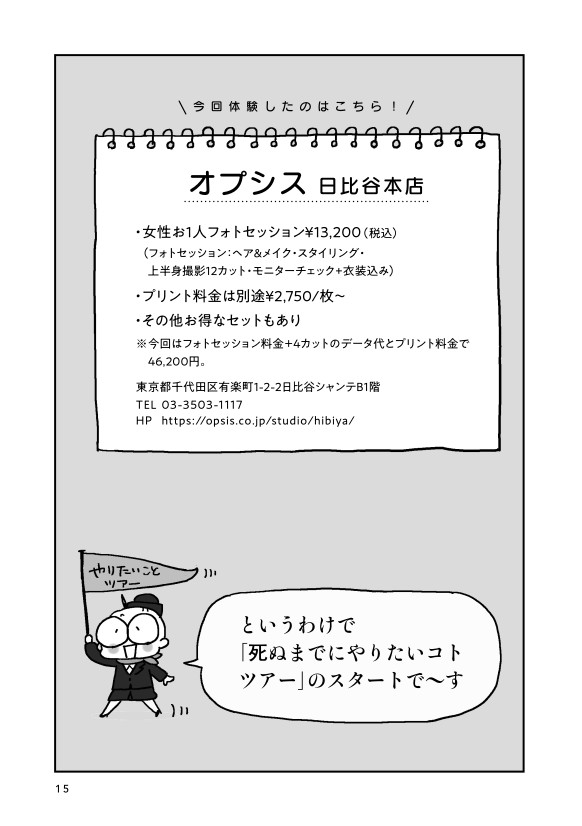 今回体験したのはこちら！
オプシス 日比谷本店
・女性お1人フォトセッション¥13,200（税込）
（フォトセッション：ヘア&メイク・スタイリング・
上半身撮影12カット・モニターチェック+衣装込み）
・プリント料金は別途¥2,750/枚〜
・その他お得なセットもあり
※今回はフォトセッション料金＋4カットのデータ代とプリント料金で
46,200円。
東京都千代田区有楽町1-2-2日比谷シャンテB1階
TEL 03-3503-1117
HP https://opsis.co.jp/studio/hibiya/
やりたいこと
ツアー
というわけで
「死ぬまでにやりたいコト
ツアー」のスタートで〜す
15